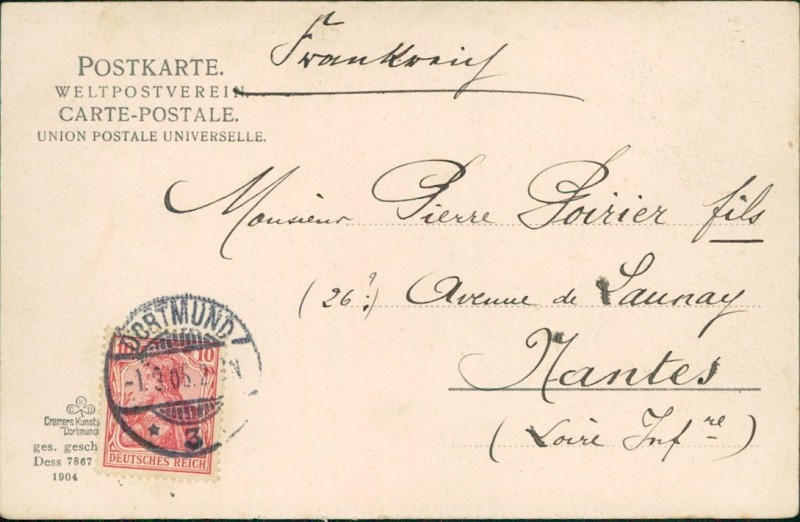 Frankreich
POSTKARTE.
WELTPOSTVEREIN.
CARTE-POSTALE.
UNION POSTALE UNIVERSELLE.
Monsieur Pierre Poirier fils
(26?) Avenue de Launay
Nantes
(Loire Inf re)
DORTMUND
10 10
-1.3.05.
* 3
DEUTSCHES REICH
Cramers Kunsts
Dortmund
ges. gesch
Dess 7867
1904